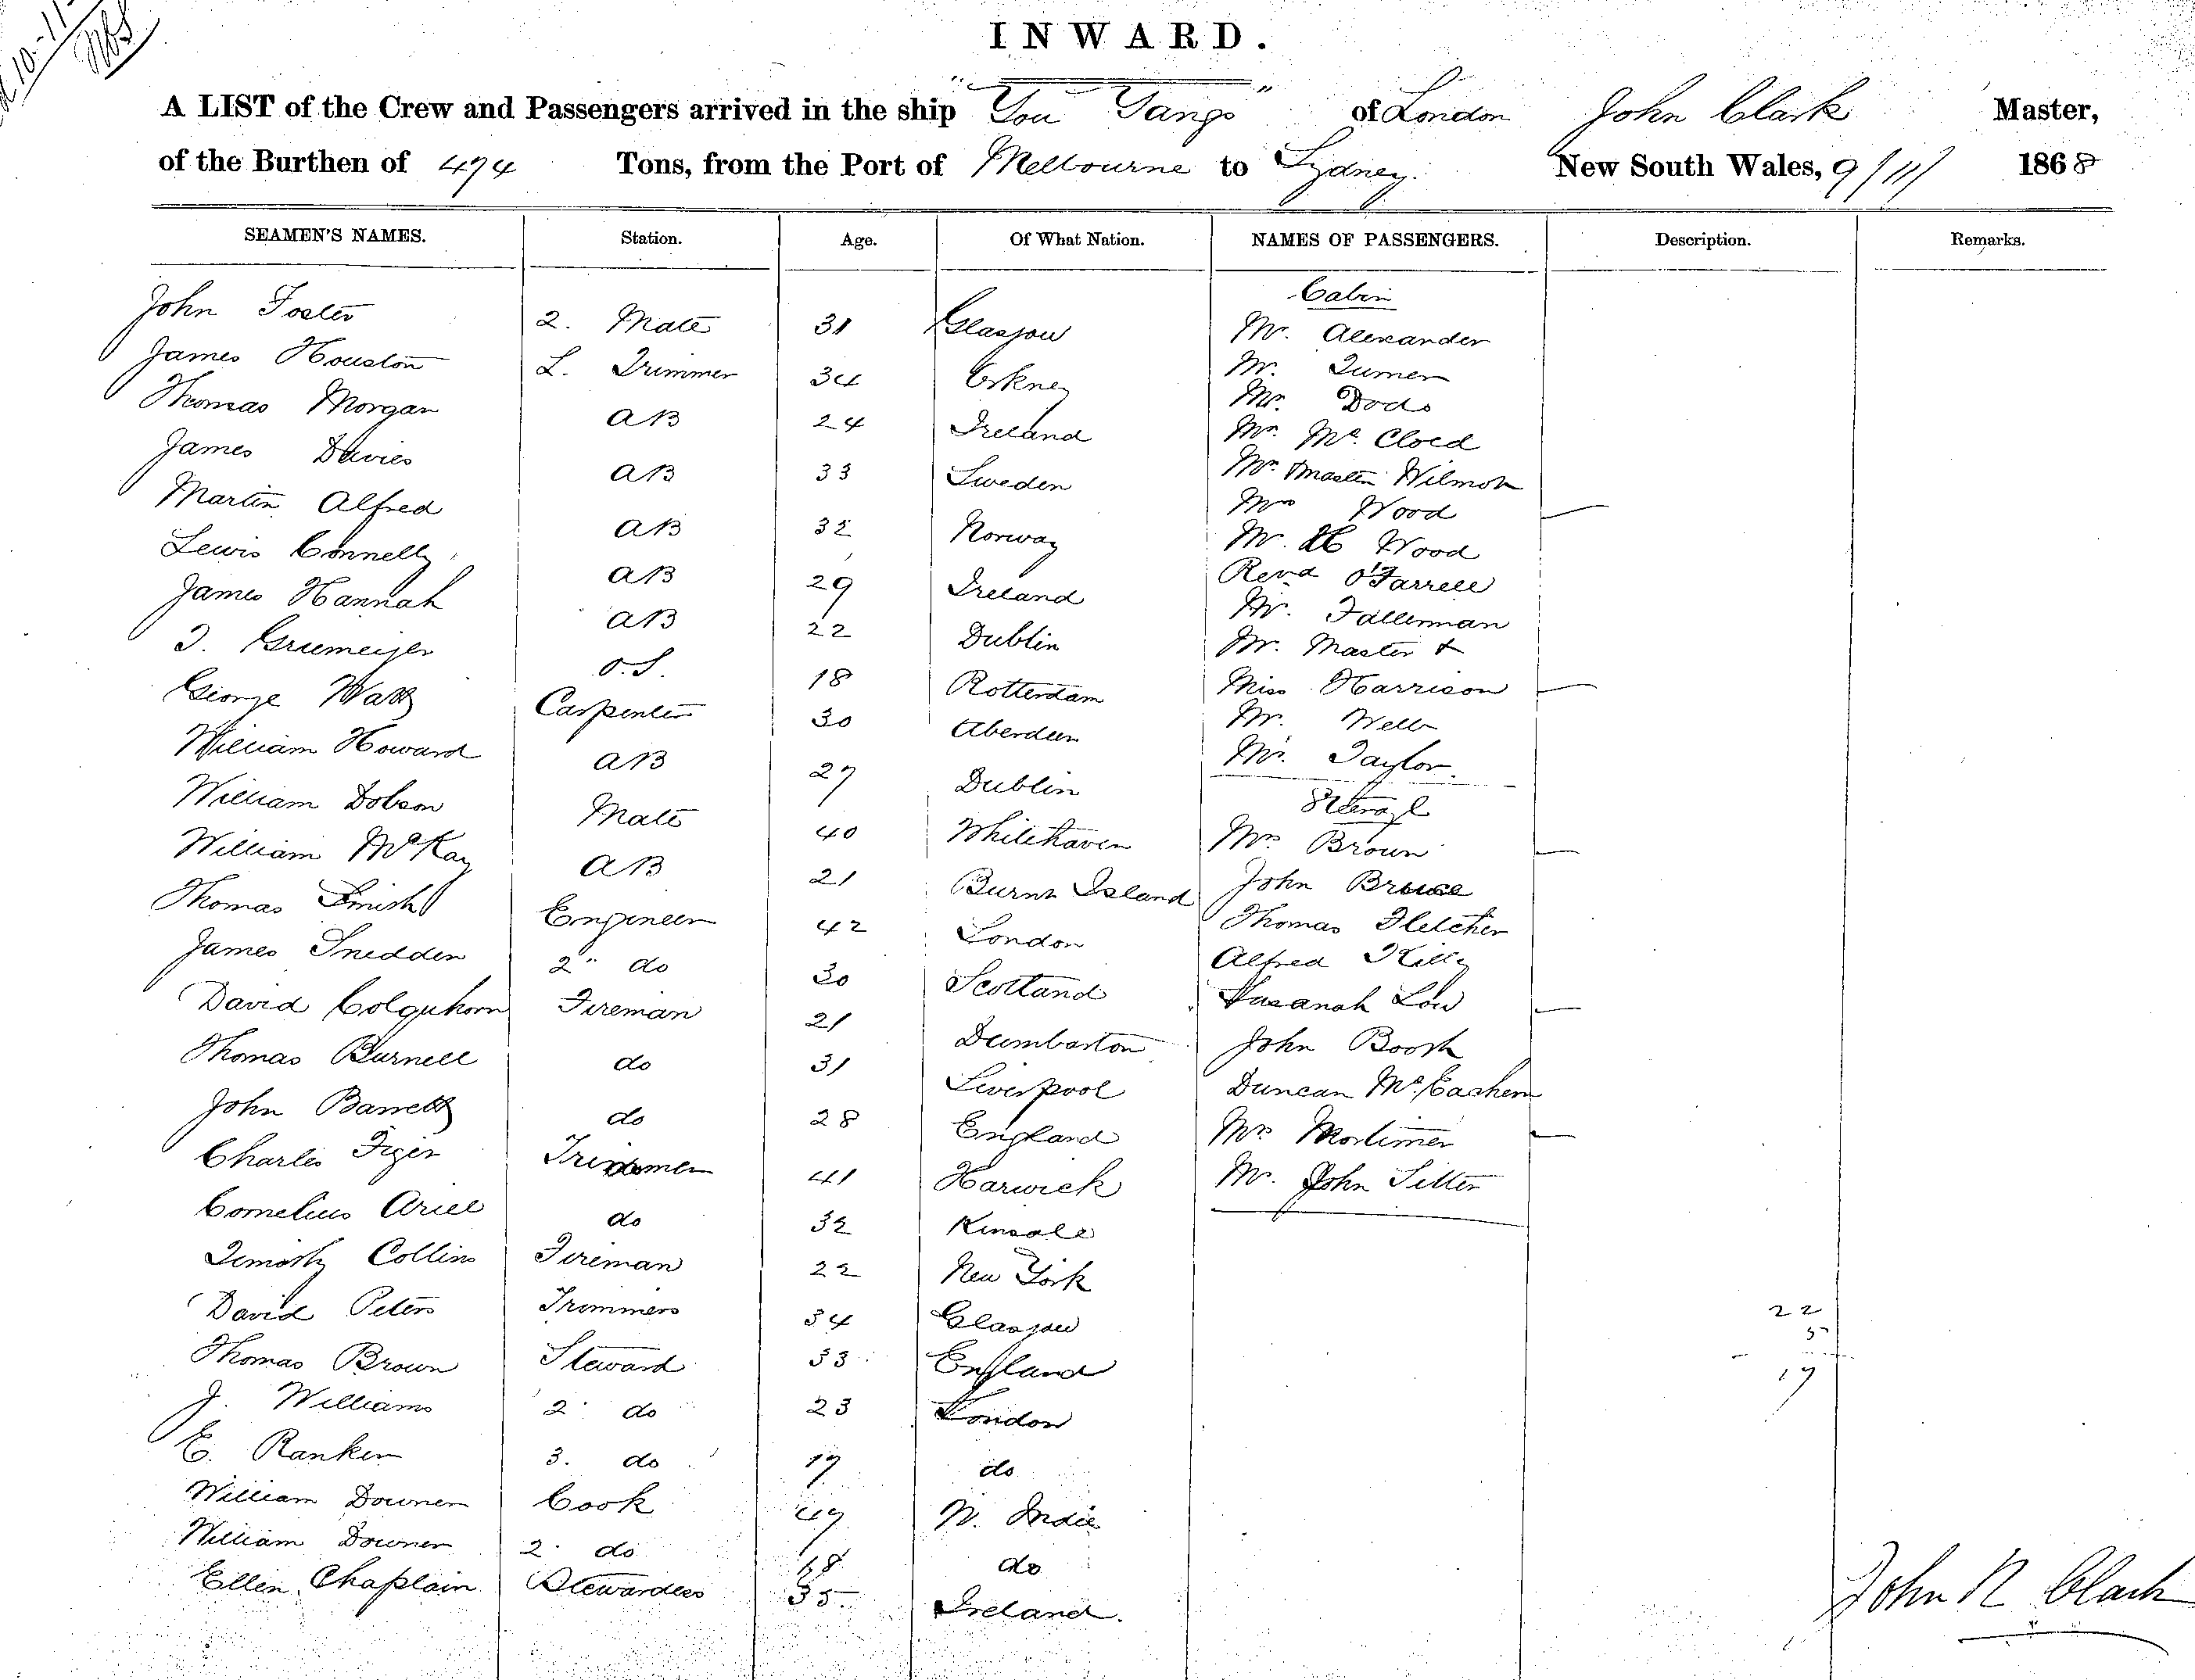 INWARD.
A LIST of the Crew and Passengers arrived in the ship "You Yangs" of London John Clark Master,
of the Burthen of 474 Tons, from the Port of Melbourne to Sydney. New South Wales, 9/11/ 1868
SEAMEN'S NAMES. Station. Age. Of What Nation. NAMES OF PASSENGERS. Description. Remarks.
Cabin
John Foster 2. Mate 31 Glasgow Mr. Alexander
James Houston L. Trimmer 34 Orkney Mr. Turner
Thomas Morgan AB 24 Ireland Mr. Dods
James Davies AB 33 Sweden Mr. Mc. Cloed
Martin Alfred AB 32 Norway Mr. Master Wilmot
Lewis Connelly AB 29 Ireland Mrs Wood
James Hannah AB 22 Dublin Mr. H Wood
J. O.S. 18 Rotterdam Revd O'Farrell
George Watt Carpenter 30 Aberdeen Mr. Fallerman
William Howard AB 27 Dublin Mr. Master &
William Dobson Mate 40 Whitehaven Miss Harrison
William McKay AB 21 Burnt Island Mr. Webb
Thomas Smith Engineer 42 London Mr. Taylor.
James Snedden 2" do 30 Scotland Sterage
David Colquhorn Fireman 21 Dumbarton Mrs Brown
Thomas Burnell do 31 Liverpool John
John Barrett do 28 England Thomas Fletcher
Charles Figer Trimmer 41 Harwick Alfred
Cornelius Ariel do 32 Kinsale Susanah Low
Timothy Collins Fireman 22 New York John Booth
David Peters Trimmers 34 Glasgow Duncan Mc.Eachern
Thomas Brown Steward 33 England Mrs Mortimer
J. Williams 2 do 23 London Mr. John Sitter
E. Ranken 3. do 17 do
William Downer Cook 49 W. Indie
William Downer 2. do 18 do
Ellen Chaplain Stewardess 35 Ireland.
22
5
17
John R Clark